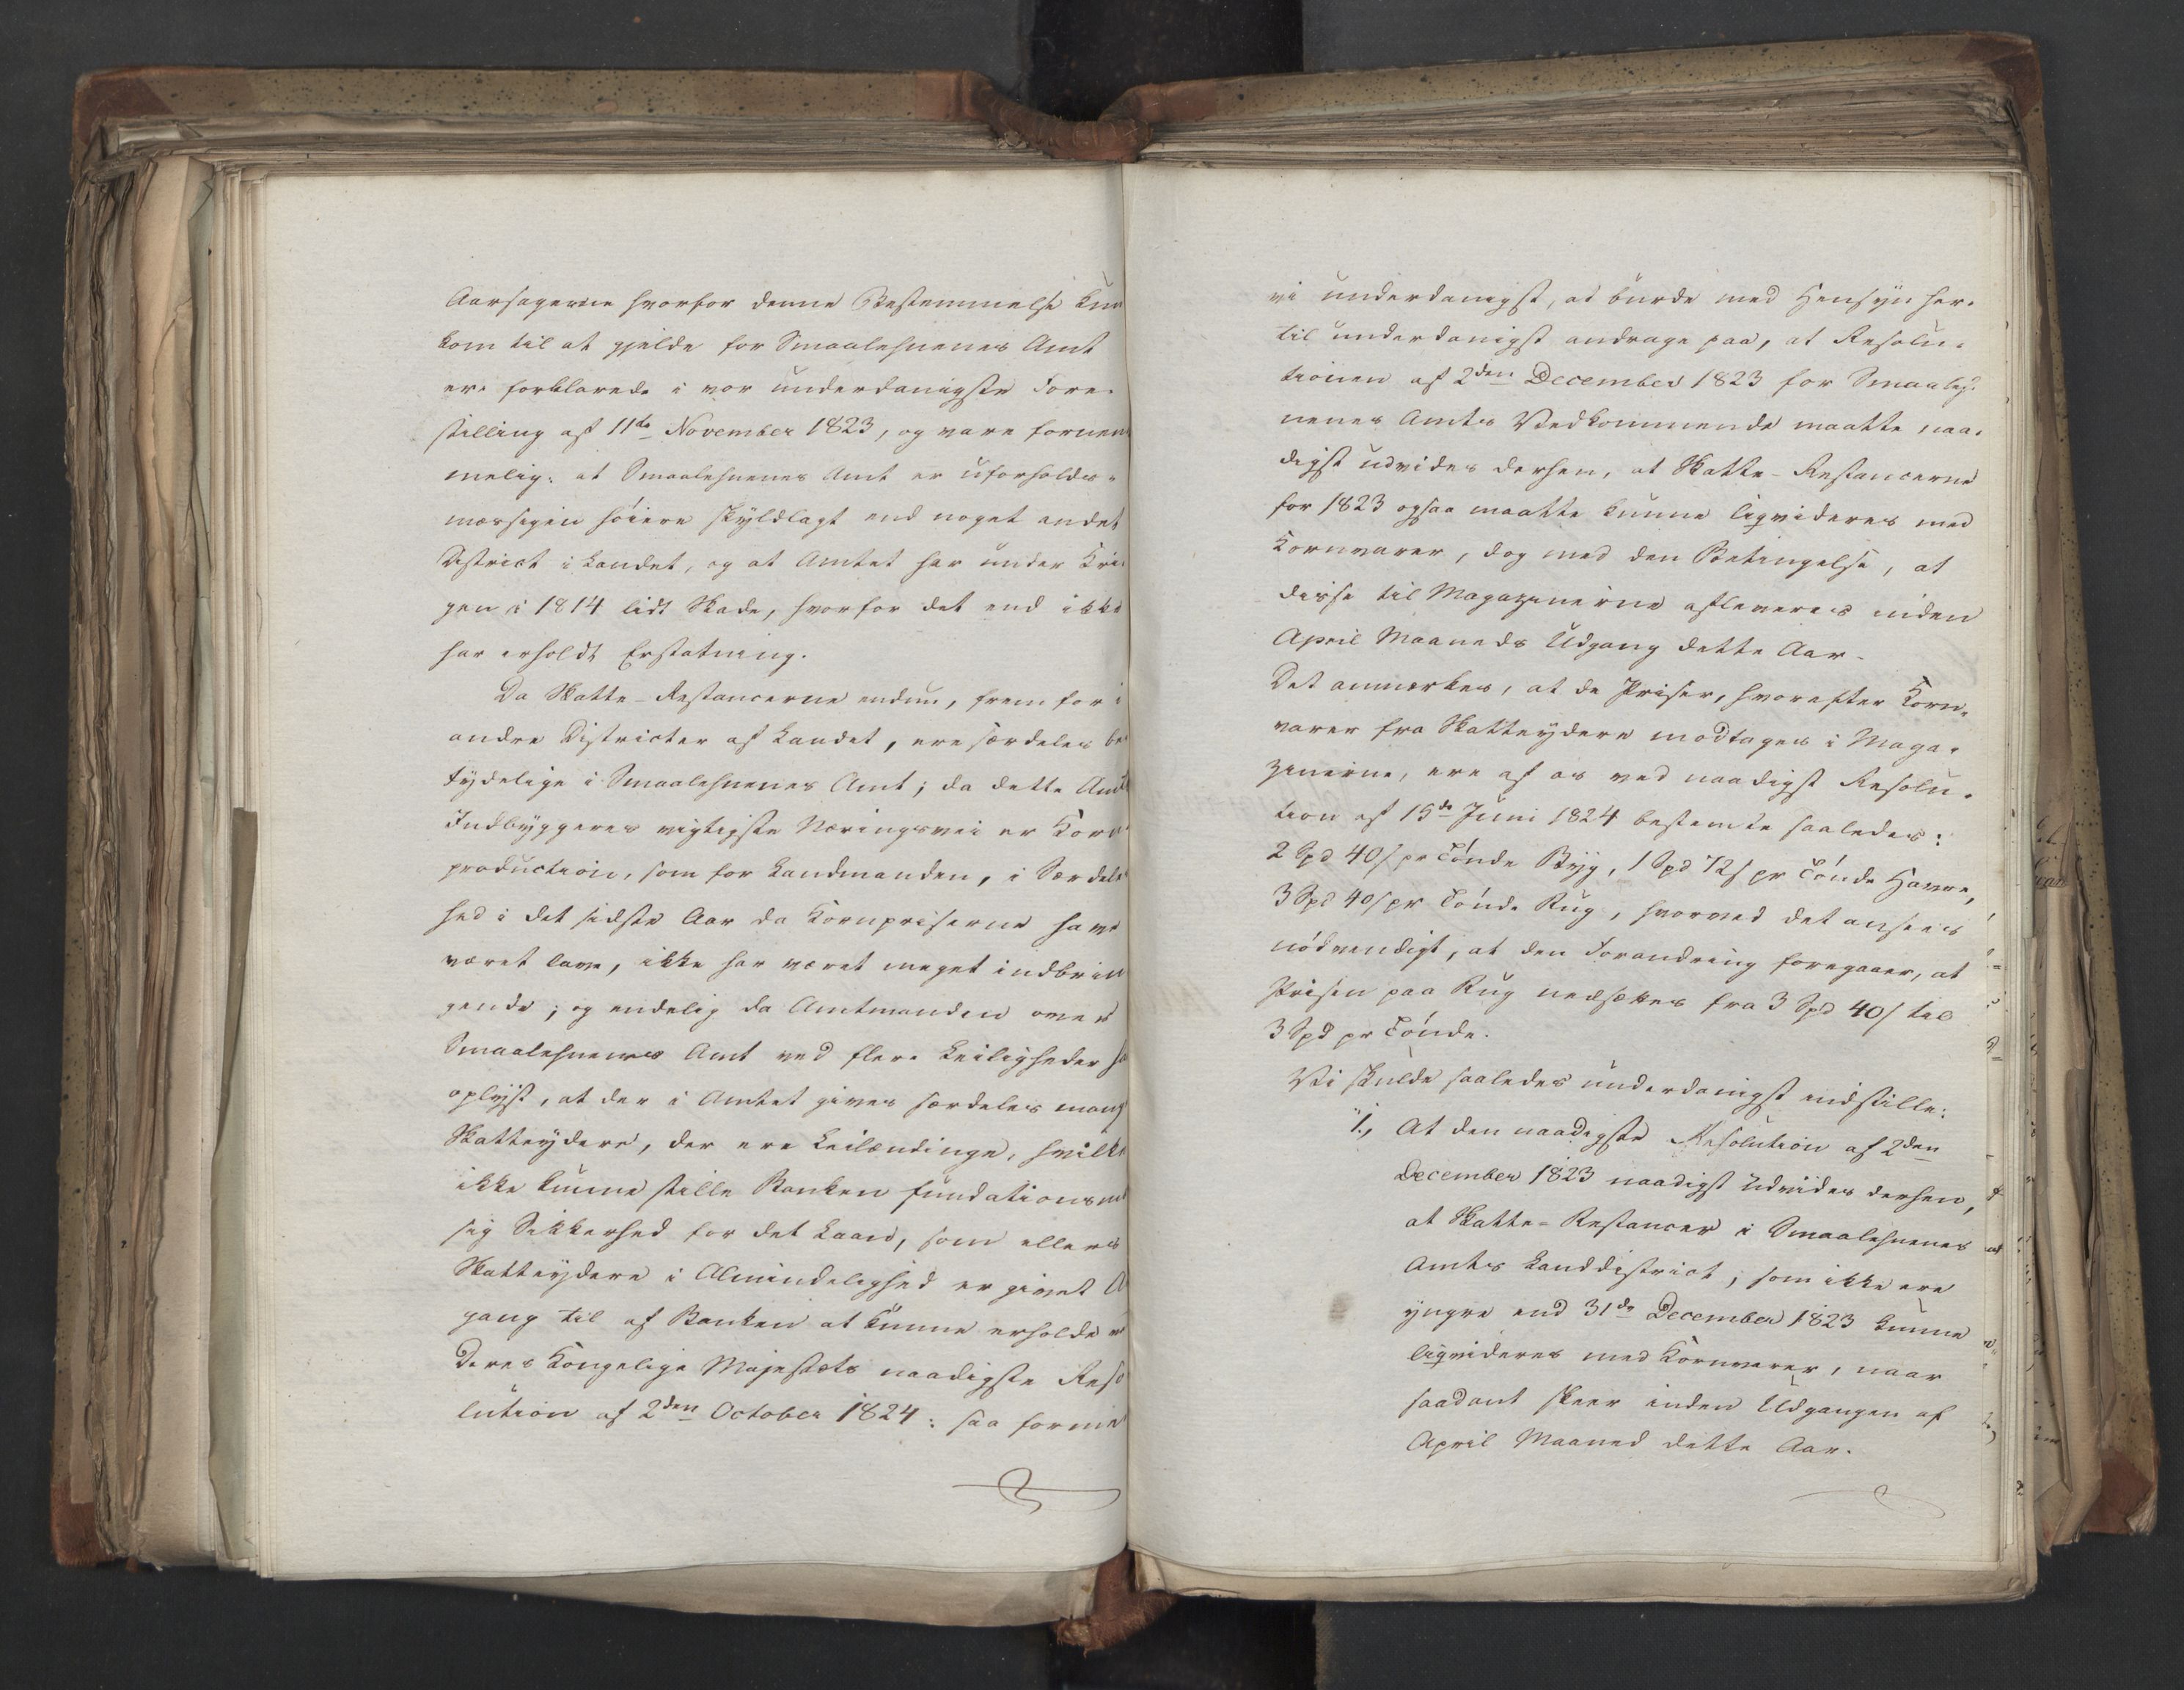 Aarsagerne hvorfor denne Bestemmelse kun
kom til at gjelde for Smaalehnenes Amt
ere forklarede i vor underdanigste Fore-
stilling af 11te November 1823, og vare fornem
melig: at Smaalehnenes Amt er uforholds-
mæssigen höiere skyldlagt end noget andet
District i Landet, og at Amtet har under Kri-
gen i 1814 lidt Skade, hvorfor det end ikke
har erholdt Erstatning.
Da Skatte-Restancerne endnu, frem for i
andre Districter af Landet, ere særdeles be
tydelige i Smaalehnenes Amt; da dette Amts
Indbyggeres vigtigste Næringsvei er Korn
production, som for Landmanden, i Særdeles
hed i det sidste Aar da Kornpriserne have
været lave, ikke har været meget indbrin
gende; og endelig da Amtmanden over
Smaalehnenes Amt ved flere Leiligheder ha
oplyst, at der i Amtet gives særdeles mang
Skatteydere, der ere Leilændinge, hvilke
ikke kunne stille Banken fundationsmæ
sig Sikkerhed for det Laan, som ellers
Skatteydere i Almindelighed er givet A
gang til af Banken at kunne erholde ve
Deres Kongelige Majestæts naadigste Reso
lution af 2den October 1824: saa formene
vi underdanigst, at burde med Hensyn her-
til underdanigst andrage paa, at Resolu-
tionen af 2den December 1823 for Smaaleh-
nenes Amts Vedkommende maatte naa-
digst udvides derhen, at Skatte-Restancerne
for 1823 ogsaa maatte kunne liqvideres med
Kornvarer, dog med den Betingelse, at
disse til Magazinerne afleveres inden
April Maaneds Udgang dette Aar.
Det anmærkes, at de Priser, hvorefter Korn-
varer fra Skatteydere modtages i Maga-
zinerne, ere af os ved naadigst Resolu-
tion af 15de Juni 1824 bestemte saaledes:
2 Spd 40 s pr Tönde Byg, 1 Spd 72 s pr Tönde Havre,
3 Spd 40 s pr Tönde Rug, hvorved det ansees
nödvendigt, at den Forandring foregaaer, at
Prisen paa Rug nedsættes fra 3 Spd 40 s til
3 Spd pr Tönde.
Vi skulde saaledes underdanigst indstille:
"1., At den naadigste Resolution af 2den
December 1823 naadigst udvides derhen,
at Skatte-Restancer i Smaalehnenes
Amts Landdistrict, som ikke ere
yngre end 31de December 1823 kunne
liqvideres med Kornvarer, naar
saadant skeer inden Udgangen af
April Maaned dette Aar.